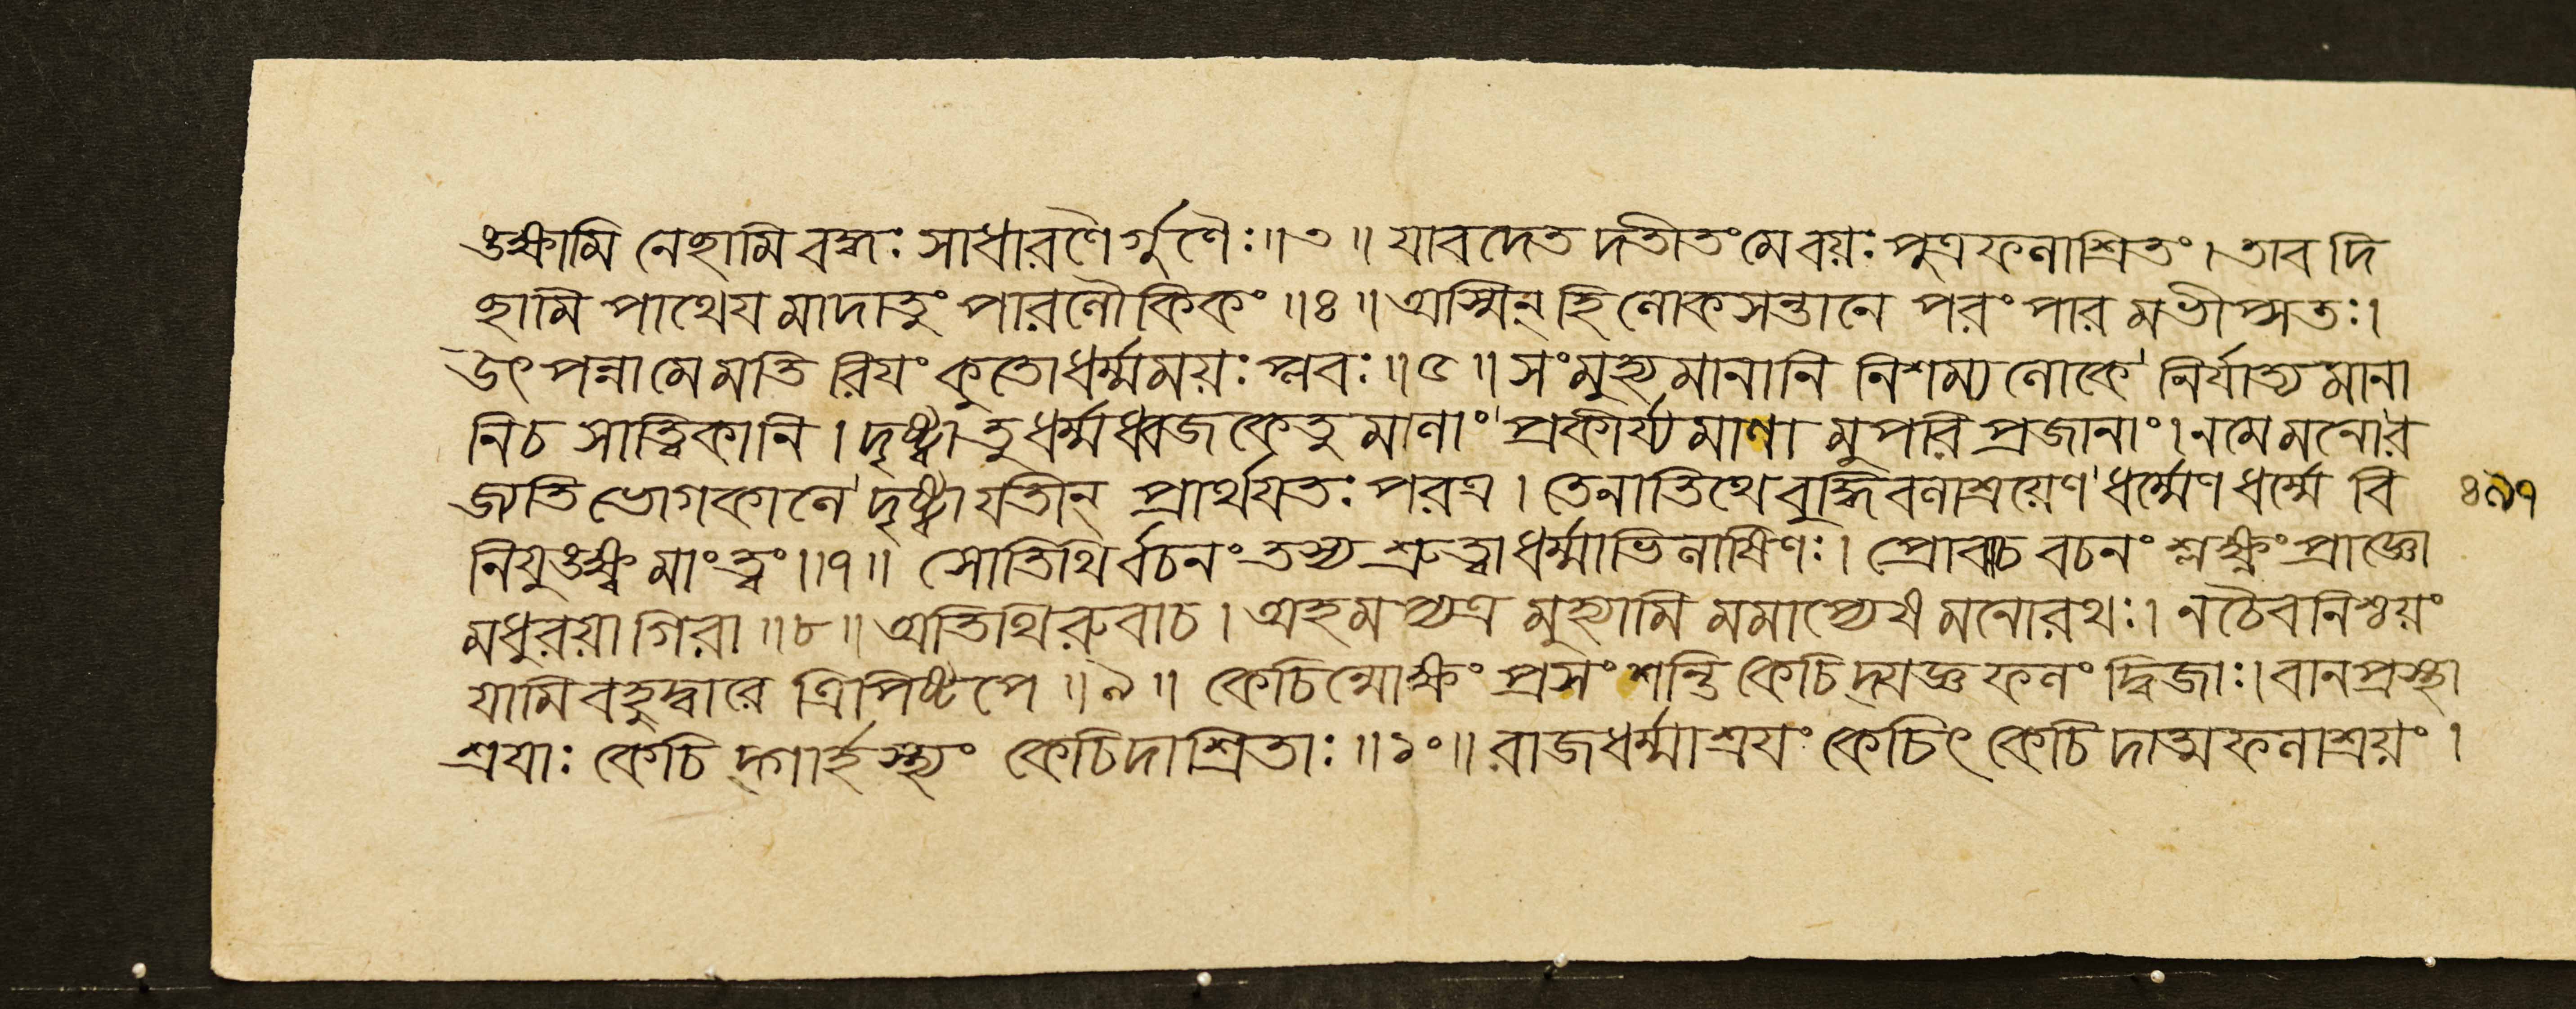 ঙক্ষামি নেছামি বদ্ধঃ সাধারণৈর্গুণৈঃ॥৩॥ যাবদেত দতীতং মে বয়ঃ পুত্রফলাশ্রিতং। তাব দি
ছামি পাথেয মাদাতুং পারলৌকিকং॥৪॥ অস্মিন্ হি লোকসন্তানে পরং পার মভীপ্সতঃ।
উৎ পন্না মে মতি রিযং কুতো ধর্ম্মময়ঃ প্লবঃ॥৫॥ সংমুহ্য মানানি নিশম্য লোকে নির্যাত্য মানা
নি চ সাত্ত্বিকানি। দৃষ্ট্বা তু ধর্ম্মধ্বজ কেতু মালাং প্রকীর্য্য মাণা মুপরি প্রজানাং। ন মে মনো র
জ্যতি ভোগকালে দৃষ্ট্বা যতীন্ প্রার্থযতঃ পরত্র। তেনাতিথে বুদ্ধিবলাশ্রয়েণ ধর্ম্মেণ ধর্ম্মে বি
নিযুঙক্ষ্ব মাং ত্বং॥৭॥ সোতিথি র্বচনং তস্য শ্রুত্বা ধর্ম্মাভিলাষিণঃ। প্রোবাচ বচনং শ্লক্ষ্ণং প্রাজ্ঞো
মধুরয়া গিরা॥৮॥ অতিথিরুবাচ। অহমপ্যত্র মুহ্যামি মমাপ্যেষ মনোরথঃ। ন চৈব নিশ্চয়ং
যামি বহুদ্বারে ত্রিপিষ্টপে॥৯॥ কেচিন্মোক্ষং প্রসংশন্তি কেচিদ্যজ্ঞ ফলং দ্বিজাঃ। বানপ্রস্থা
শ্রযাঃ কেচি দ্গার্হস্থ্যং কেচিদাশ্রিতাঃ॥১০॥ রাজধর্ম্মাশ্রযং কেচিৎ কেচি দাত্মফলাশ্রয়ং।
৪৯৭